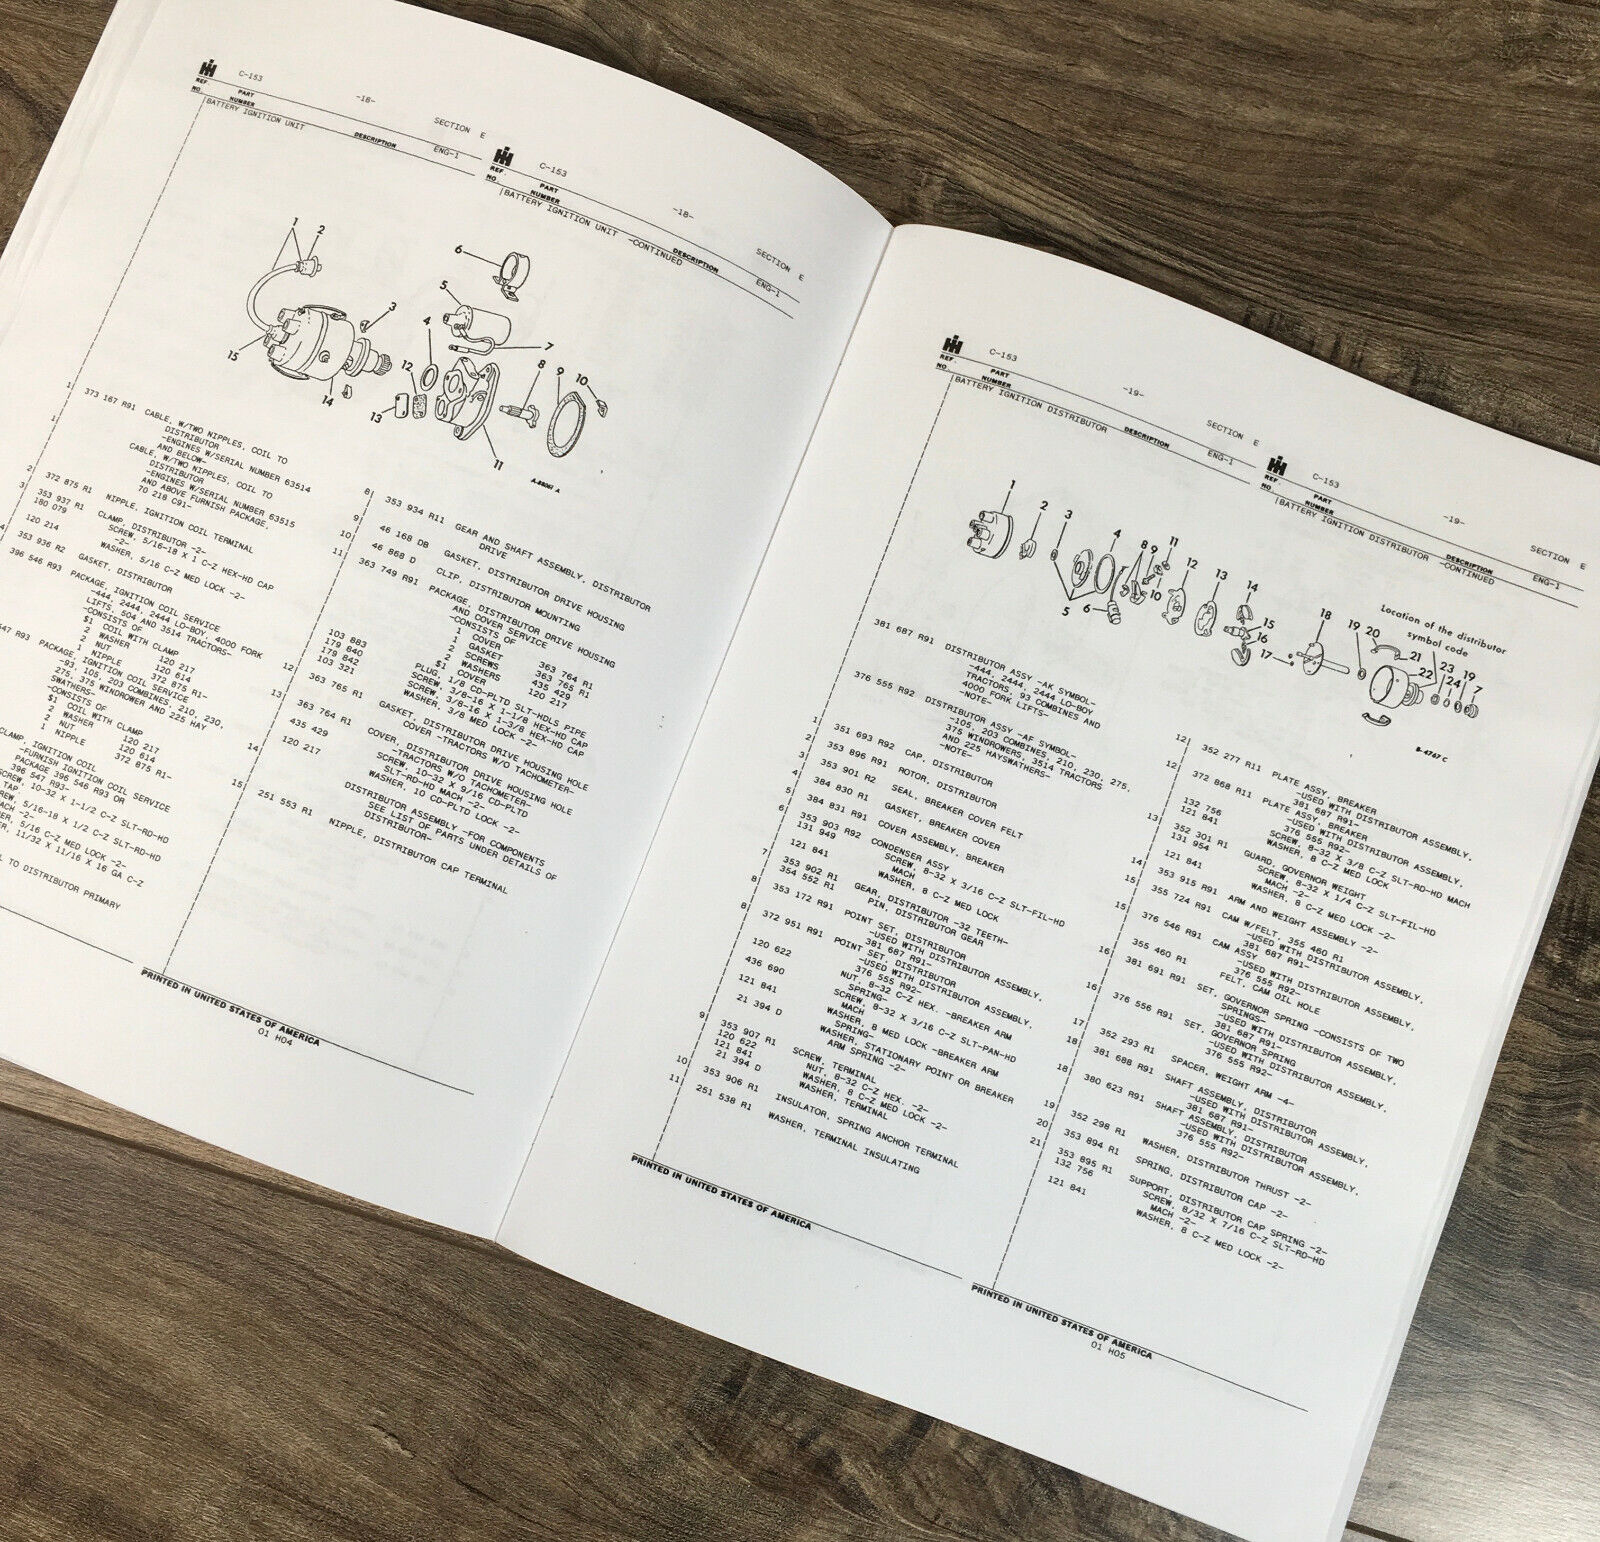 C-153
-18-
SECTION E
REF. NO. PART NUMBER DESCRIPTION ENG-1
BATTERY IGNITION UNIT
C-153
-18-
SECTION E
REF. NO PART NUMBER DESCRIPTION ENG-1
BATTERY IGNITION UNIT -CONTINUED
1
2
3
4
5
6
7
8
9
10
11
12
13
14
15
373 167 R91 CABLE, W/TWO NIPPLES, COIL TO
DISTRIBUTOR
-ENGINES W/SERIAL NUMBER 63514
AND BELOW-
CABLE, W/TWO NIPPLES, COIL TO
DISTRIBUTOR
-ENGINES W/SERIAL NUMBER 63515
AND ABOVE FURNISH PACKAGE,
70 218 C91-
2 372 875 R1 NIPPLE, IGNITION COIL TERMINAL
3 353 937 R1 CLAMP, DISTRIBUTOR -2-
180 079 SCREW, 5/16-18 X 1 C-Z HEX-HD CAP
-2-
120 214 WASHER, 5/16 C-Z MED LOCK -2-
4 353 936 R2 GASKET, DISTRIBUTOR
396 546 R93 PACKAGE, IGNITION COIL SERVICE
-444, 2444, 2444 LO-BOY, 4000 FORK
LIFTS, 504 AND 3514 TRACTORS-
-CONSISTS OF
$1 COIL WITH CLAMP
2 WASHER 120 217
2 NUT 120 614
1 NIPPLE 372 875 R1-
547 R93 PACKAGE, IGNITION COIL SERVICE
-93, 105, 203 COMBINES, 210, 230,
275, 375 WINDROWER AND 225 HAY
SWATHERS-
-CONSISTS OF
$1 COIL WITH CLAMP
2 WASHER 120 217
2 NUT 120 614
1 NIPPLE 372 875 R1-
CLAMP, IGNITION COIL
-FURNISH IGNITION COIL SERVICE
PACKAGE 396 546 R93 OR
396 547 R93-
10-32 X 1-1/2 C-Z SLT-RD-HD
5/16-18 X 1/2 C-Z SLT-RD-HD
MACH -2-
5/16 C-Z MED LOCK -2-
11/32 X 11/16 X 16 GA C-Z
TO DISTRIBUTOR PRIMARY
A-86061 A
8 353 934 R11 GEAR AND SHAFT ASSEMBLY, DISTRIBUTOR
DRIVE
9 46 168 DB GASKET, DISTRIBUTOR DRIVE HOUSING
10 46 868 D CLIP, DISTRIBUTOR MOUNTING
11 363 749 R91 PACKAGE, DISTRIBUTOR DRIVE HOUSING
AND COVER SERVICE
-CONSISTS OF
1 COVER 363 764 R1
1 GASKET 363 765 R1
2 SCREWS 435 429
2 WASHERS 120 217
$1 COVER
103 883 PLUG, 1/8 CD-PLTD SLT-HDLS PIPE
179 840 SCREW, 3/8-16 X 1-1/8 HEX-HD CAP
179 842 SCREW, 3/8-16 X 1-3/8 HEX-HD CAP
103 321 WASHER, 3/8 MED LOCK -2-
12 363 765 R1 GASKET, DISTRIBUTOR DRIVE HOUSING HOLE
COVER -TRACTORS W/O TACHOMETER-
13 363 764 R1 COVER, DISTRIBUTOR DRIVE HOUSING HOLE
-TRACTORS W/O TACHOMETER-
435 429 SCREW, 10-32 X 9/16 CD-PLTD
SLT-RD-HD MACH -2-
120 217 WASHER, 10 CD-PLTD LOCK -2-
14 DISTRIBUTOR ASSEMBLY -FOR COMPONENTS
SEE LIST OF PARTS UNDER DETAILS OF
DISTRIBUTOR-
15 251 553 R1 NIPPLE, DISTRIBUTOR CAP TERMINAL
PRINTED IN UNITED STATES OF AMERICA
01 H04
C-153
-19-
SECTION E
REF. NO. PART NUMBER DESCRIPTION ENG-1
BATTERY IGNITION DISTRIBUTOR
C-153
-19-
SECTION E
REF. NO PART NUMBER DESCRIPTION ENG-1
BATTERY IGNITION DISTRIBUTOR -CONTINUED
1 2 3 4 5 6 8 9 10 11 12 13 14 15 16 17 18 19 20 21 22 23 24 19 7
Location of the distributor
symbol code
B-4767 C
381 687 R91 DISTRIBUTOR ASSY -AK SYMBOL-
-444, 2444, 2444 LO-BOY
TRACTORS, 93 COMBINES AND
4000 FORK LIFTS-
-NOTE-
376 555 R92 DISTRIBUTOR ASSY -AF SYMBOL-
-105, 203 COMBINES, 210, 230, 275,
375 WINDROWERS, 3514 TRACTORS
AND 225 HAYSWATHERS-
-NOTE-
1 351 693 R92 CAP, DISTRIBUTOR
2 353 896 R91 ROTOR, DISTRIBUTOR
3 353 901 R2 SEAL, BREAKER COVER FELT
4 384 830 R1 GASKET, BREAKER COVER
5 384 831 R91 COVER ASSEMBLY, BREAKER
6 353 903 R92 CONDENSER ASSY
131 949 SCREW, 8-32 X 3/16 C-Z SLT-FIL-HD
MACH
121 841 WASHER, 8 C-Z MED LOCK
7 353 902 R1 GEAR, DISTRIBUTOR -32 TEETH-
354 552 R1 PIN, DISTRIBUTOR GEAR
8 353 172 R91 POINT SET, DISTRIBUTOR
-USED WITH DISTRIBUTOR ASSEMBLY,
381 687 R91-
8 372 951 R91 POINT SET, DISTRIBUTOR
-USED WITH DISTRIBUTOR ASSEMBLY,
376 555 R92-
120 622 NUT, 8-32 C-Z HEX. -BREAKER ARM
SPRING-
436 690 SCREW, 8-32 X 3/16 C-Z SLT-PAN-HD
MACH
121 841 WASHER, 8 MED LOCK -BREAKER ARM
SPRING-
21 394 D WASHER, STATIONARY POINT OR BREAKER
ARM SPRING -2-
9 353 907 R1 SCREW, TERMINAL
120 622 NUT, 8-32 C-Z HEX. -2-
121 841 WASHER, 8 C-Z MED LOCK -2-
21 394 D WASHER, TERMINAL
10 353 906 R1 INSULATOR, SPRING ANCHOR TERMINAL
11 251 538 R1 WASHER, TERMINAL INSULATING
12 352 277 R11 PLATE ASSY, BREAKER
-USED WITH DISTRIBUTOR ASSEMBLY,
381 687 R91-
12 372 868 R11 PLATE ASSY, BREAKER
-USED WITH DISTRIBUTOR ASSEMBLY,
376 555 R92-
132 756 SCREW, 8-32 X 3/8 C-Z SLT-RD-HD MACH
121 841 WASHER, 8 C-Z MED LOCK
13 352 301 R1 GUARD, GOVERNOR WEIGHT
131 954 SCREW, 8-32 X 1/4 C-Z SLT-FIL-HD
MACH -2-
121 841 WASHER, 8 C-Z MED LOCK -2-
14 353 915 R91 ARM AND WEIGHT ASSEMBLY -2-
15 355 724 R91 CAM W/FELT, 355 460 R1
-USED WITH DISTRIBUTOR ASSEMBLY,
381 687 R91-
15 376 546 R91 CAM ASSY
-USED WITH DISTRIBUTOR ASSEMBLY,
376 555 R92-
355 460 R1 FELT, CAM OIL HOLE
16 381 691 R91 SET, GOVERNOR SPRING -CONSISTS OF TWO
SPRINGS-
-USED WITH DISTRIBUTOR ASSEMBLY,
381 687 R91-
16 376 556 R91 SET, GOVERNOR SPRING
-USED WITH DISTRIBUTOR ASSEMBLY,
376 555 R92-
17 352 293 R1 SPACER, WEIGHT ARM -4-
18 381 688 R91 SHAFT ASSEMBLY, DISTRIBUTOR
-USED WITH DISTRIBUTOR ASSEMBLY,
381 687 R91-
18 380 623 R91 SHAFT ASSEMBLY, DISTRIBUTOR
-USED WITH DISTRIBUTOR ASSEMBLY,
376 555 R92-
19 352 298 R1 WASHER, DISTRIBUTOR THRUST -2-
20 353 894 R1 SPRING, DISTRIBUTOR CAP -2-
21 353 895 R1 SUPPORT, DISTRIBUTOR CAP SPRING -2-
132 756 SCREW, 8/32 X 7/16 C-Z SLT-RD-HD
MACH -2-
121 841 WASHER, 8 C-Z MED LOCK -2-
PRINTED IN UNITED STATES OF AMERICA
PRINTED IN UNITED STATES OF AMERICA
01 H05